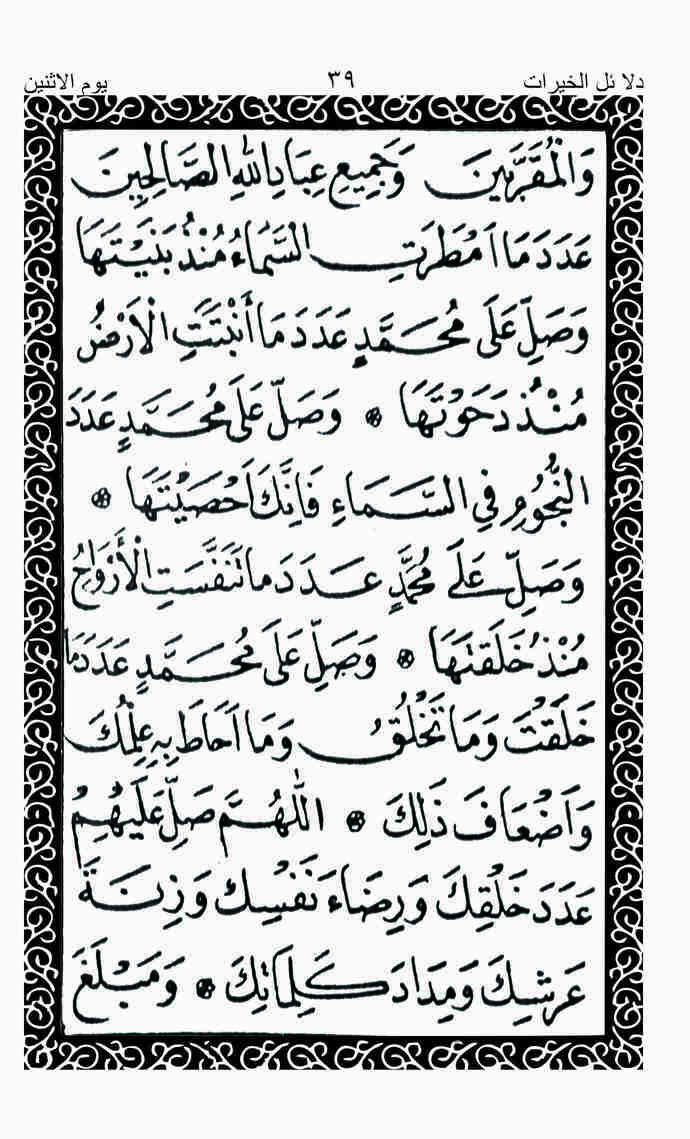 دلائل الخيرات ٣٩ يوم الاثنين
وَالْمُقَرَّبِينَ وَجَمِيعِ عِبَادِ اللهِ الصَّالِحِينَ
عَدَدَ مَا اَمْطَرَتِ السَّمَاءُ مُنْذُ بَنَيْتَهَا
وَصَلِّ عَلَى مُحَمَّدٍ عَدَدَ مَا أَنْبَتَتِ الْاَرْضُ
مُنْذُ دَحَوْتَهَا * وَصَلِّ عَلَى مُحَمَّدٍ عَدَدَ
النُّجُومِ فِي السَّمَاءِ فَاِنَّكَ اَحْصَيْتَهَا *
وَصَلِّ عَلَى مُحَمَّدٍ عَدَدَ مَا تَنَفَّسَتِ الْأَرْوَاحُ
مُنْذُ خَلَقْتَهَا * وَصَلِّ عَلَى مُحَمَّدٍ عَدَدَ مَا
خَلَقْتَ وَمَا تَخْلُقُ وَمَا اَحَاطَ بِهِ عِلْمُكَ
وَاَضْعَافَ ذَلِكَ * اللّٰهُمَّ صَلِّ عَلَيْهِمْ
عَدَدَ خَلْقِكَ وَرِضَاءَ نَفْسِكَ وَزِنَةَ
عَرْشِكَ وَمِدَادَ كَلِمَاتِكَ * وَمَبْلَغَ